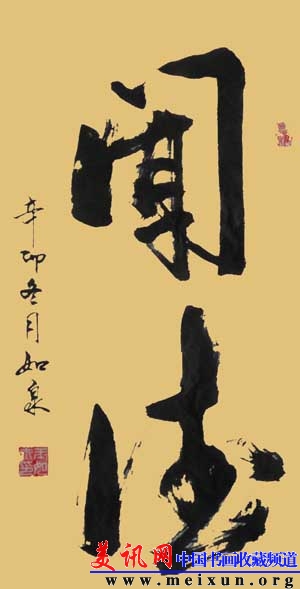 闻
辛卯冬月如泉
美讯网 中国书画收藏频道
www.meixun.org